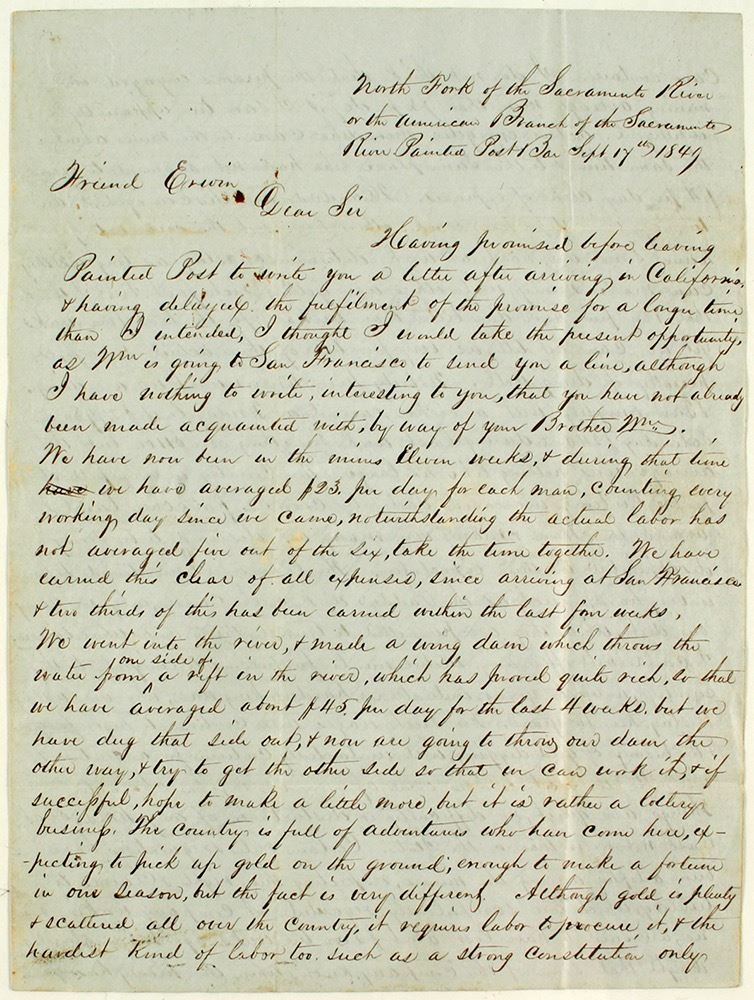 North Fork of the Sacramento River
or the American Branch of the Sacramento
River Painted Post Bar Sept 17th 1849
Friend Erwin
Dear Sir
Having promised before leaving
Painted Post to write you a letter after arriving in California,
& having delayed the fulfilment of the promise for a longer time
than I intended, I thought I would take the present opportunity,
as Wm is going to San Francisco to send you a line, although
I have nothing to write, interesting to you, that you have not already
been made acquainted with, by way of your Brother Wm.
We have now been in the mines Eleven weeks, & during that time
have we have averaged $23. per day for each man, counting every
working day since we came, notwithstanding the actual labor has
not averaged five out of the six, take the time together. We have
earned this clear of all expenses, since arriving at San Francisco
& two thirds of this has been earned within the last four weeks.
We went into the river, & made a wing dam which throws the
water from one side of a rift in the river, which has proved quite rich, so that
we have averaged about $45. per day for the last 4 weeks. but we
have dug that side out, & now are going to throw our dam the
other way, & try to get the other side so that we can work it, & if
successful, hope to make a little more, but it is rather a lottery
business. The country is full of adventurers who have come here, ex-
-pecting to pick up gold on the ground, enough to make a fortune
in one season, but the fact is very different. Although gold is plenty
& scattered all over the country, it requires labor to procure it, & the
hardest kind of labor too. such as a strong constitution only